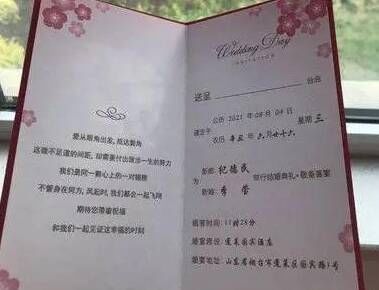 爱从眼角出发，抵达嘴角
这微不足道的间距，却需要付出彼此一生的努力
我们是同一颗心上的一对翅膀
不管身在何方，风起时，我们都会一起飞翔
期待您带着祝福
和我们一起见证这幸福的时刻
Wedding Day
INVITATION
送呈 台启
谨定于
公历 2021 年 08 月 04 日 星期 三
农历 辛丑 年 六 月 廿十六
为
新郎 纪德民
新娘 季蕾
举行结婚典礼·敬备喜宴
婚宴时间：11时28分
婚宴席设：蓬莱国宾酒店
婚宴地址：山东省烟台市蓬莱区国宾路1号